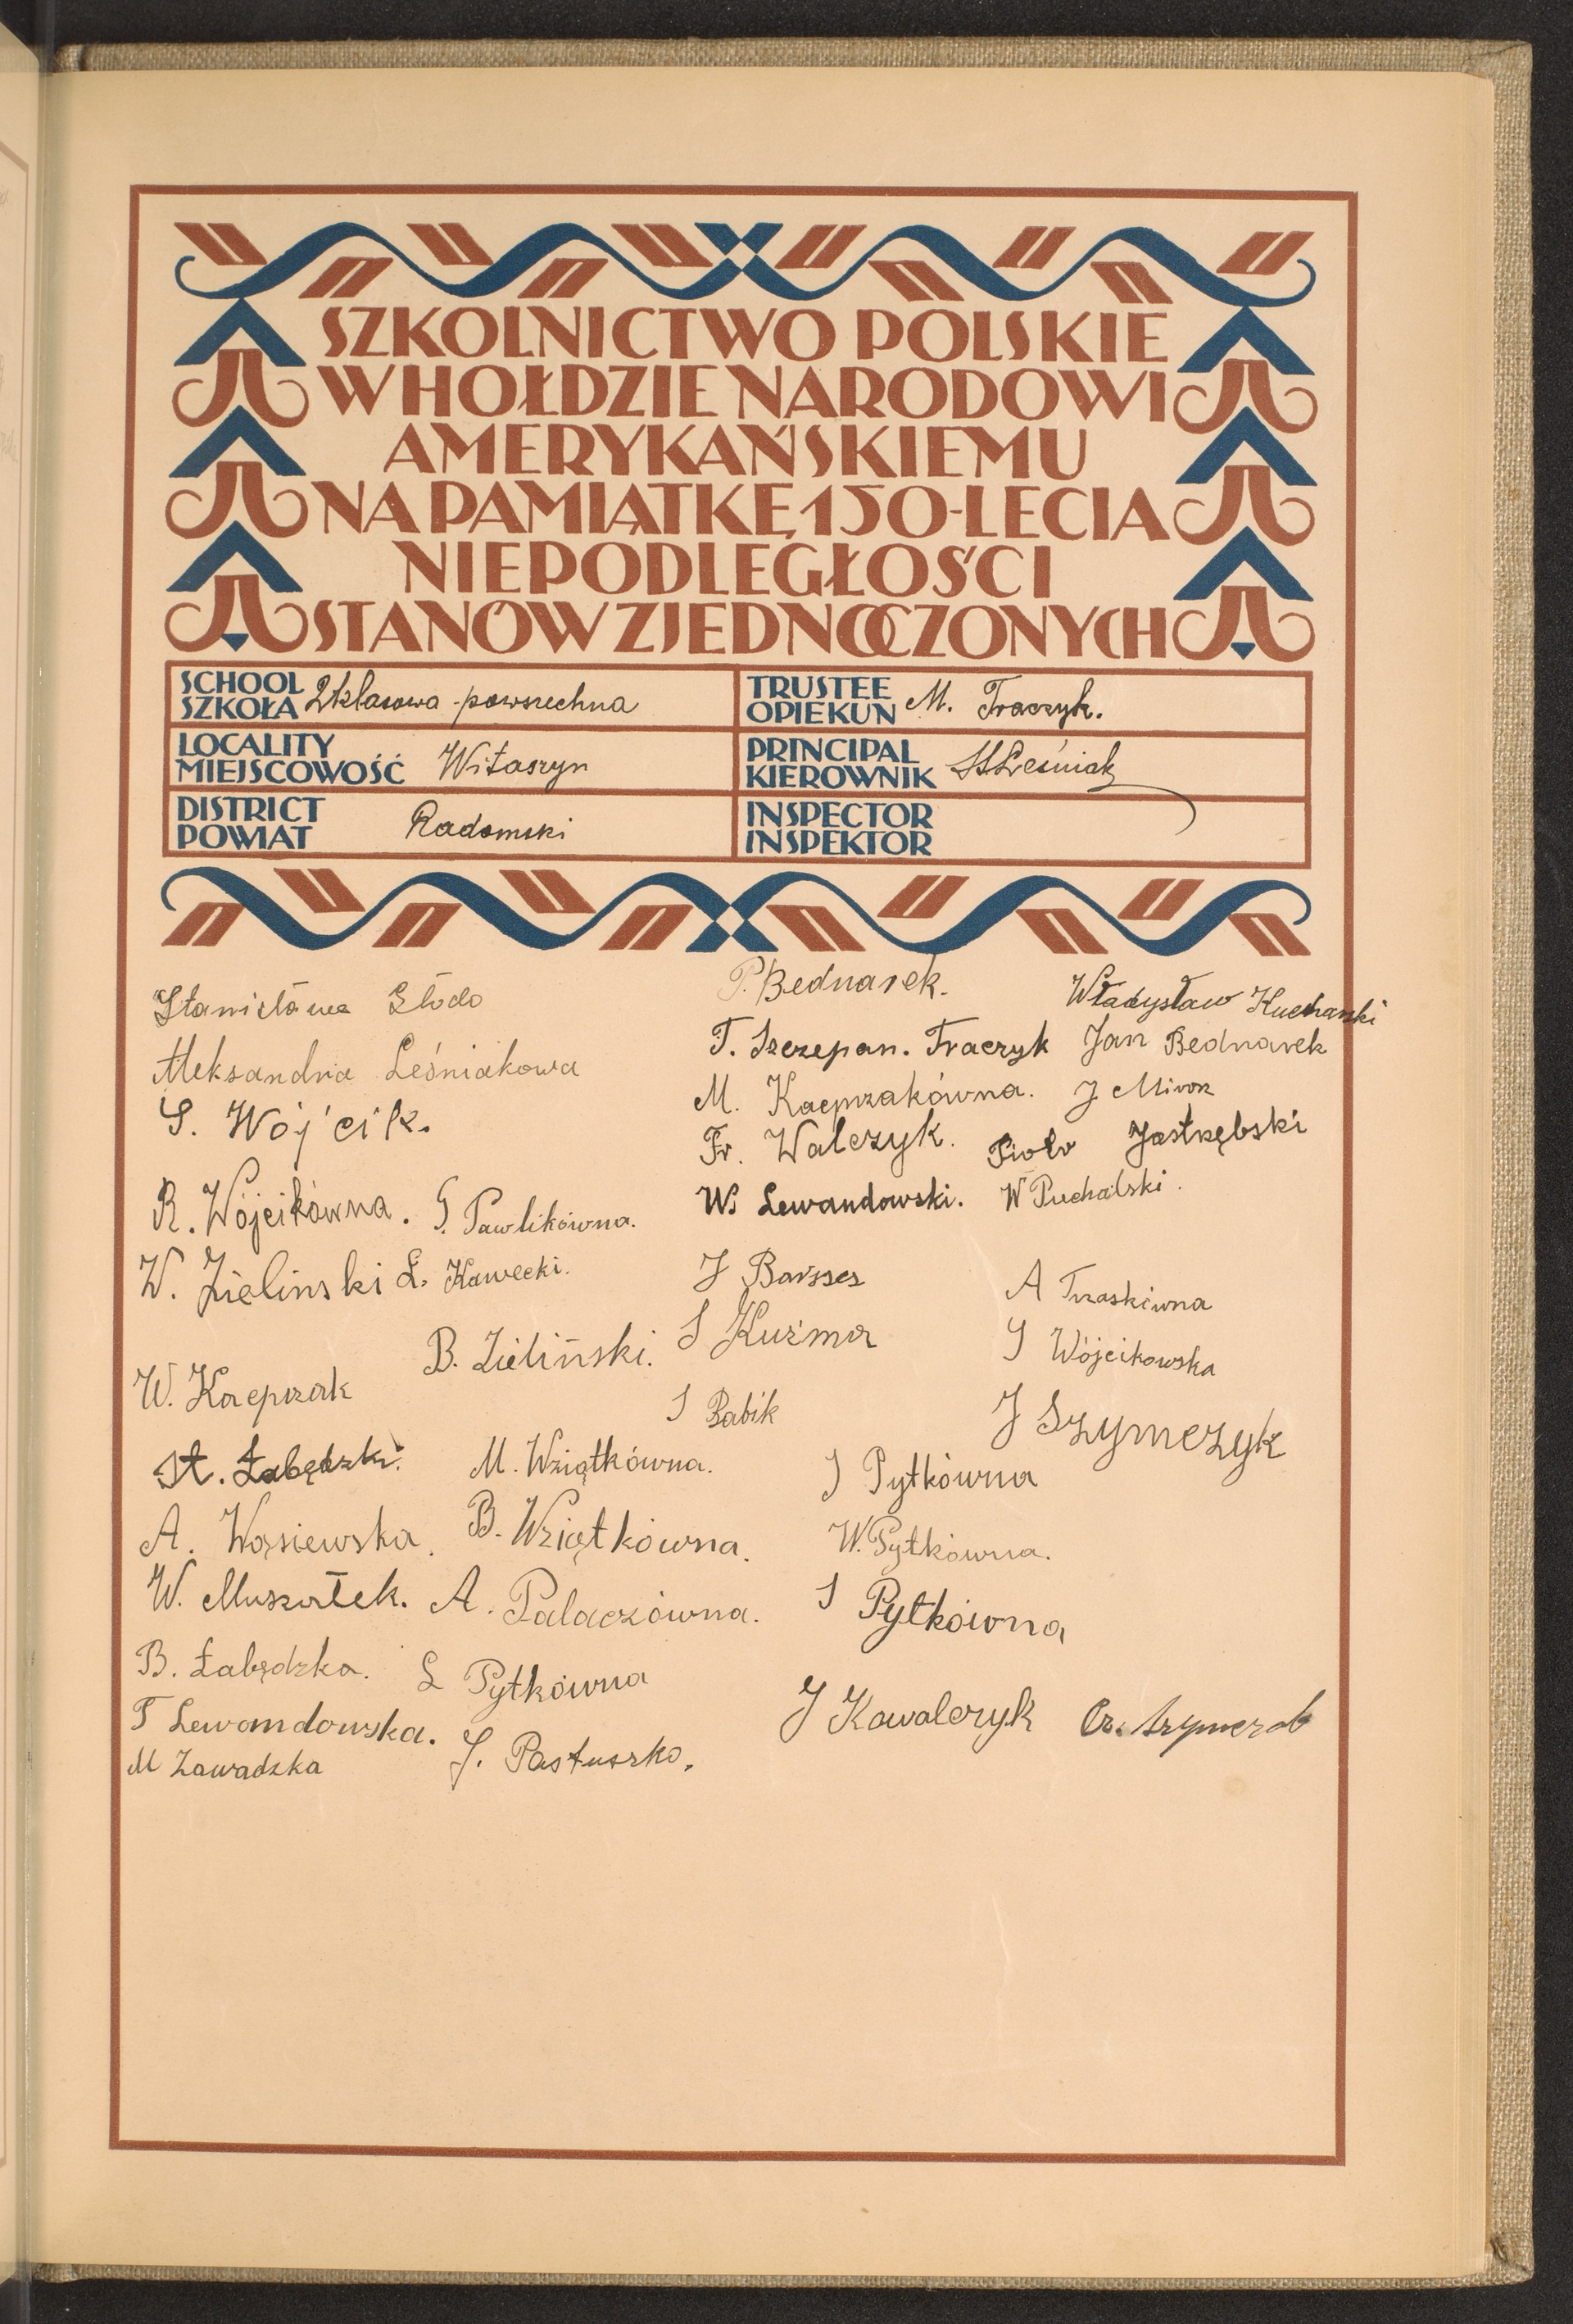 SZKOLNICTWO POLSKIE
W HOŁDZIE NARODOWI
AMERYKAŃSKIEMU
NA PAMIĄTKĘ 150-LECIA
NIEPODLEGŁOŚCI
STANÓW ZJEDNOCZONYCH
SCHOOL
SZKOŁA 2 klasowa - powszechna
TRUSTEE
OPIEKUN M. Traczyk.
LOCALITY
MIEJSCOWOŚĆ Witaszyn
PRINCIPAL
KIEROWNIK StLeśniak
DISTRICT
POWIAT Radomski
INSPECTOR
INSPEKTOR
Stanisława
Aleksandra Leśniakowa
S. Wójcik.
R. Wójcikówna. G. Pawlikówna.
W. Zielinski L. Kawecki.
B. Zieliński.
W. Kacprzak
St. Łabędzki. M. Wziątkówna.
A. Wąsiewska. B. Wziątkówna.
W. Muszałek. A. Palaczówna.
B. Łabędzka. L Pytkówna
T Lewandowska. J. Pastuszko.
M Zawadzka
P. Bednarek. Władysław Kucharski
T. Szczepan. Traczyk Jan Bednarek
M. Kacprzakówna. J
Fr. Walczyk. Piotr Jastrzębski
W. Lewandowski. W Puchalski.
J A Trzaskówna
S Kuźma J Wójcikowska
S Babik J Szymczyk
J Pytkówna
W. Pytkówna.
S Pytkówna
J Kowalczyk Cz.